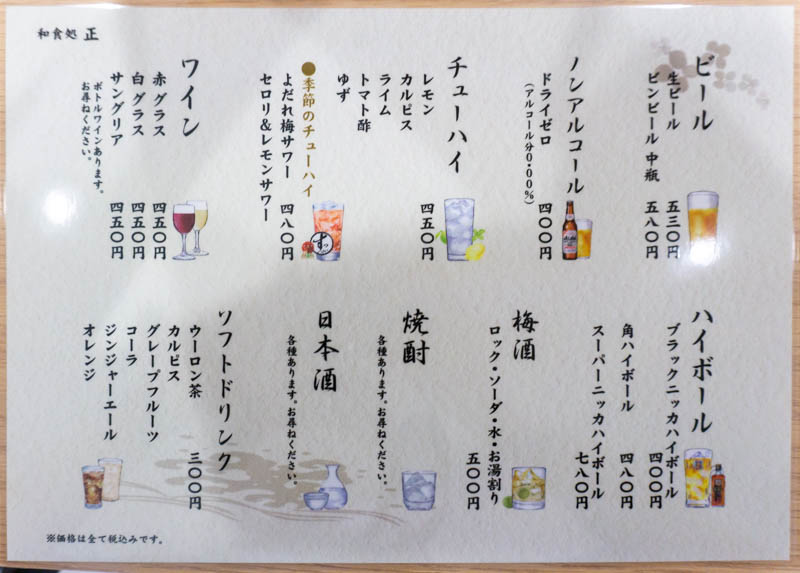 和食処 正
ビール
生ビール 五三〇円
ビンビール 中瓶 五八〇円
ノンアルコール
ドライゼロ 四〇〇円
(アルコール分0.00%)
チューハイ
レモン 四五〇円
カルピス
ライム
トマト酢
ゆず
●季節のチューハイ
よだれ梅サワー 四八〇円
セロリ&レモンサワー
ワイン
赤 グラス 四五〇円
白 グラス 四五〇円
サングリア 四五〇円
ボトルワインあります。
お尋ねください。
ハイボール
ブラックニッカハイボール 四〇〇円
角ハイボール 四八〇円
スーパーニッカハイボール 七八〇円
梅酒
ロック・ソーダ・水・お湯割り 五〇〇円
焼酎
各種あります。お尋ねください。
日本酒
各種あります。お尋ねください。
ソフトドリンク
ウーロン茶 三〇〇円
カルピス
グレープフルーツ
コーラ
ジンジャーエール
オレンジ
※価格は全て税込みです。